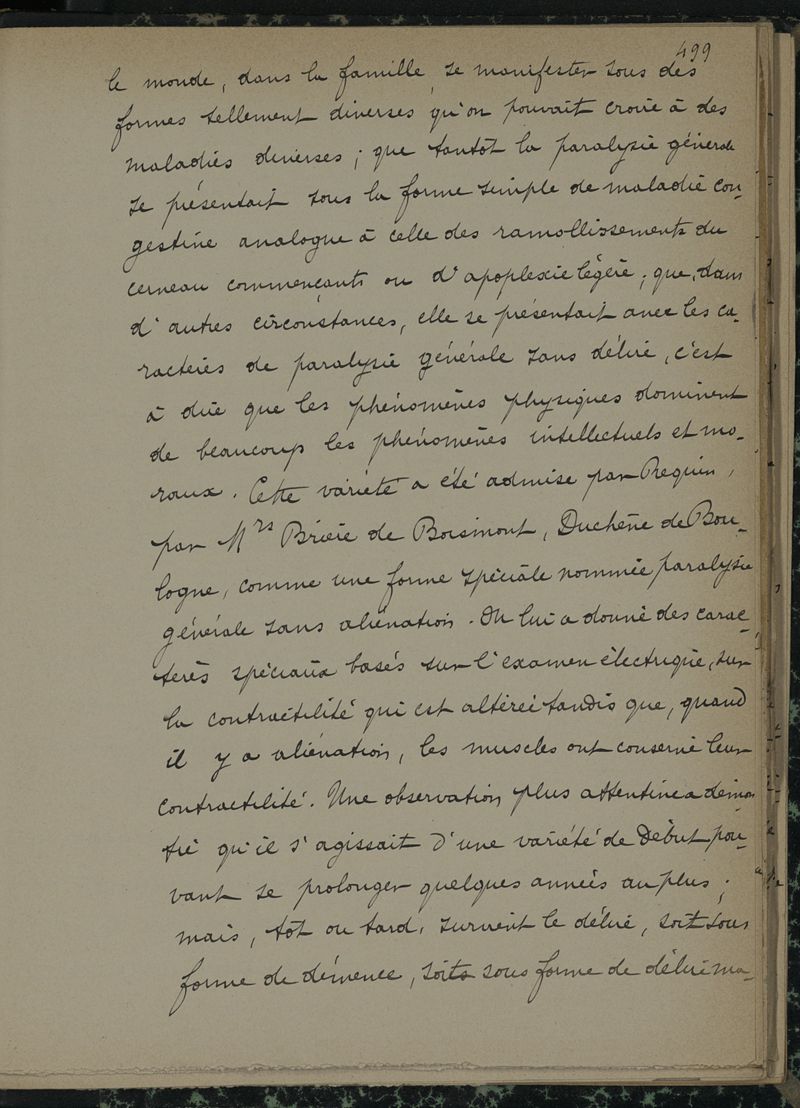 499
le monde, dans la famille, se manifester sous des
formes tellement diverses qu'on pouvait croire à des
maladies diverses ; que tantôt la paralysie générale
se présentait sous la forme simple de maladie con-
gestive analogue à celle des ramollissements du
cerveau commençants ou d'apoplexie légère ; que, dans
d'autres circonstances, elle se présentait avec les ca-
ractères de paralysie générale sans délire, c'est
à dire que les phénomènes physiques dominent
de beaucoup les phénomènes intellectuels et mo-
raux. Cette variété a été admise par Requin,
par Mrs Brière de Boismont, Duchêne de Bou-
logne, comme une forme spéciale nommée paralysie
générale sans aliénation. On lui a donné des carac-
terès spéciaux basés sur l'examen électrique, sur
la contractilité qui est altérée tandis que, quand
il y a aliénation, les muscles ont conservé leur
contractilité. Une observation plus attentive a démon
tré qu'il s'agissait d'une variété de Début pou-
vant se prolonger quelques années au plus ;
mais, tôt ou tard, survient le délire, soit sous
forme de démence, soit sous forme de délire ma-